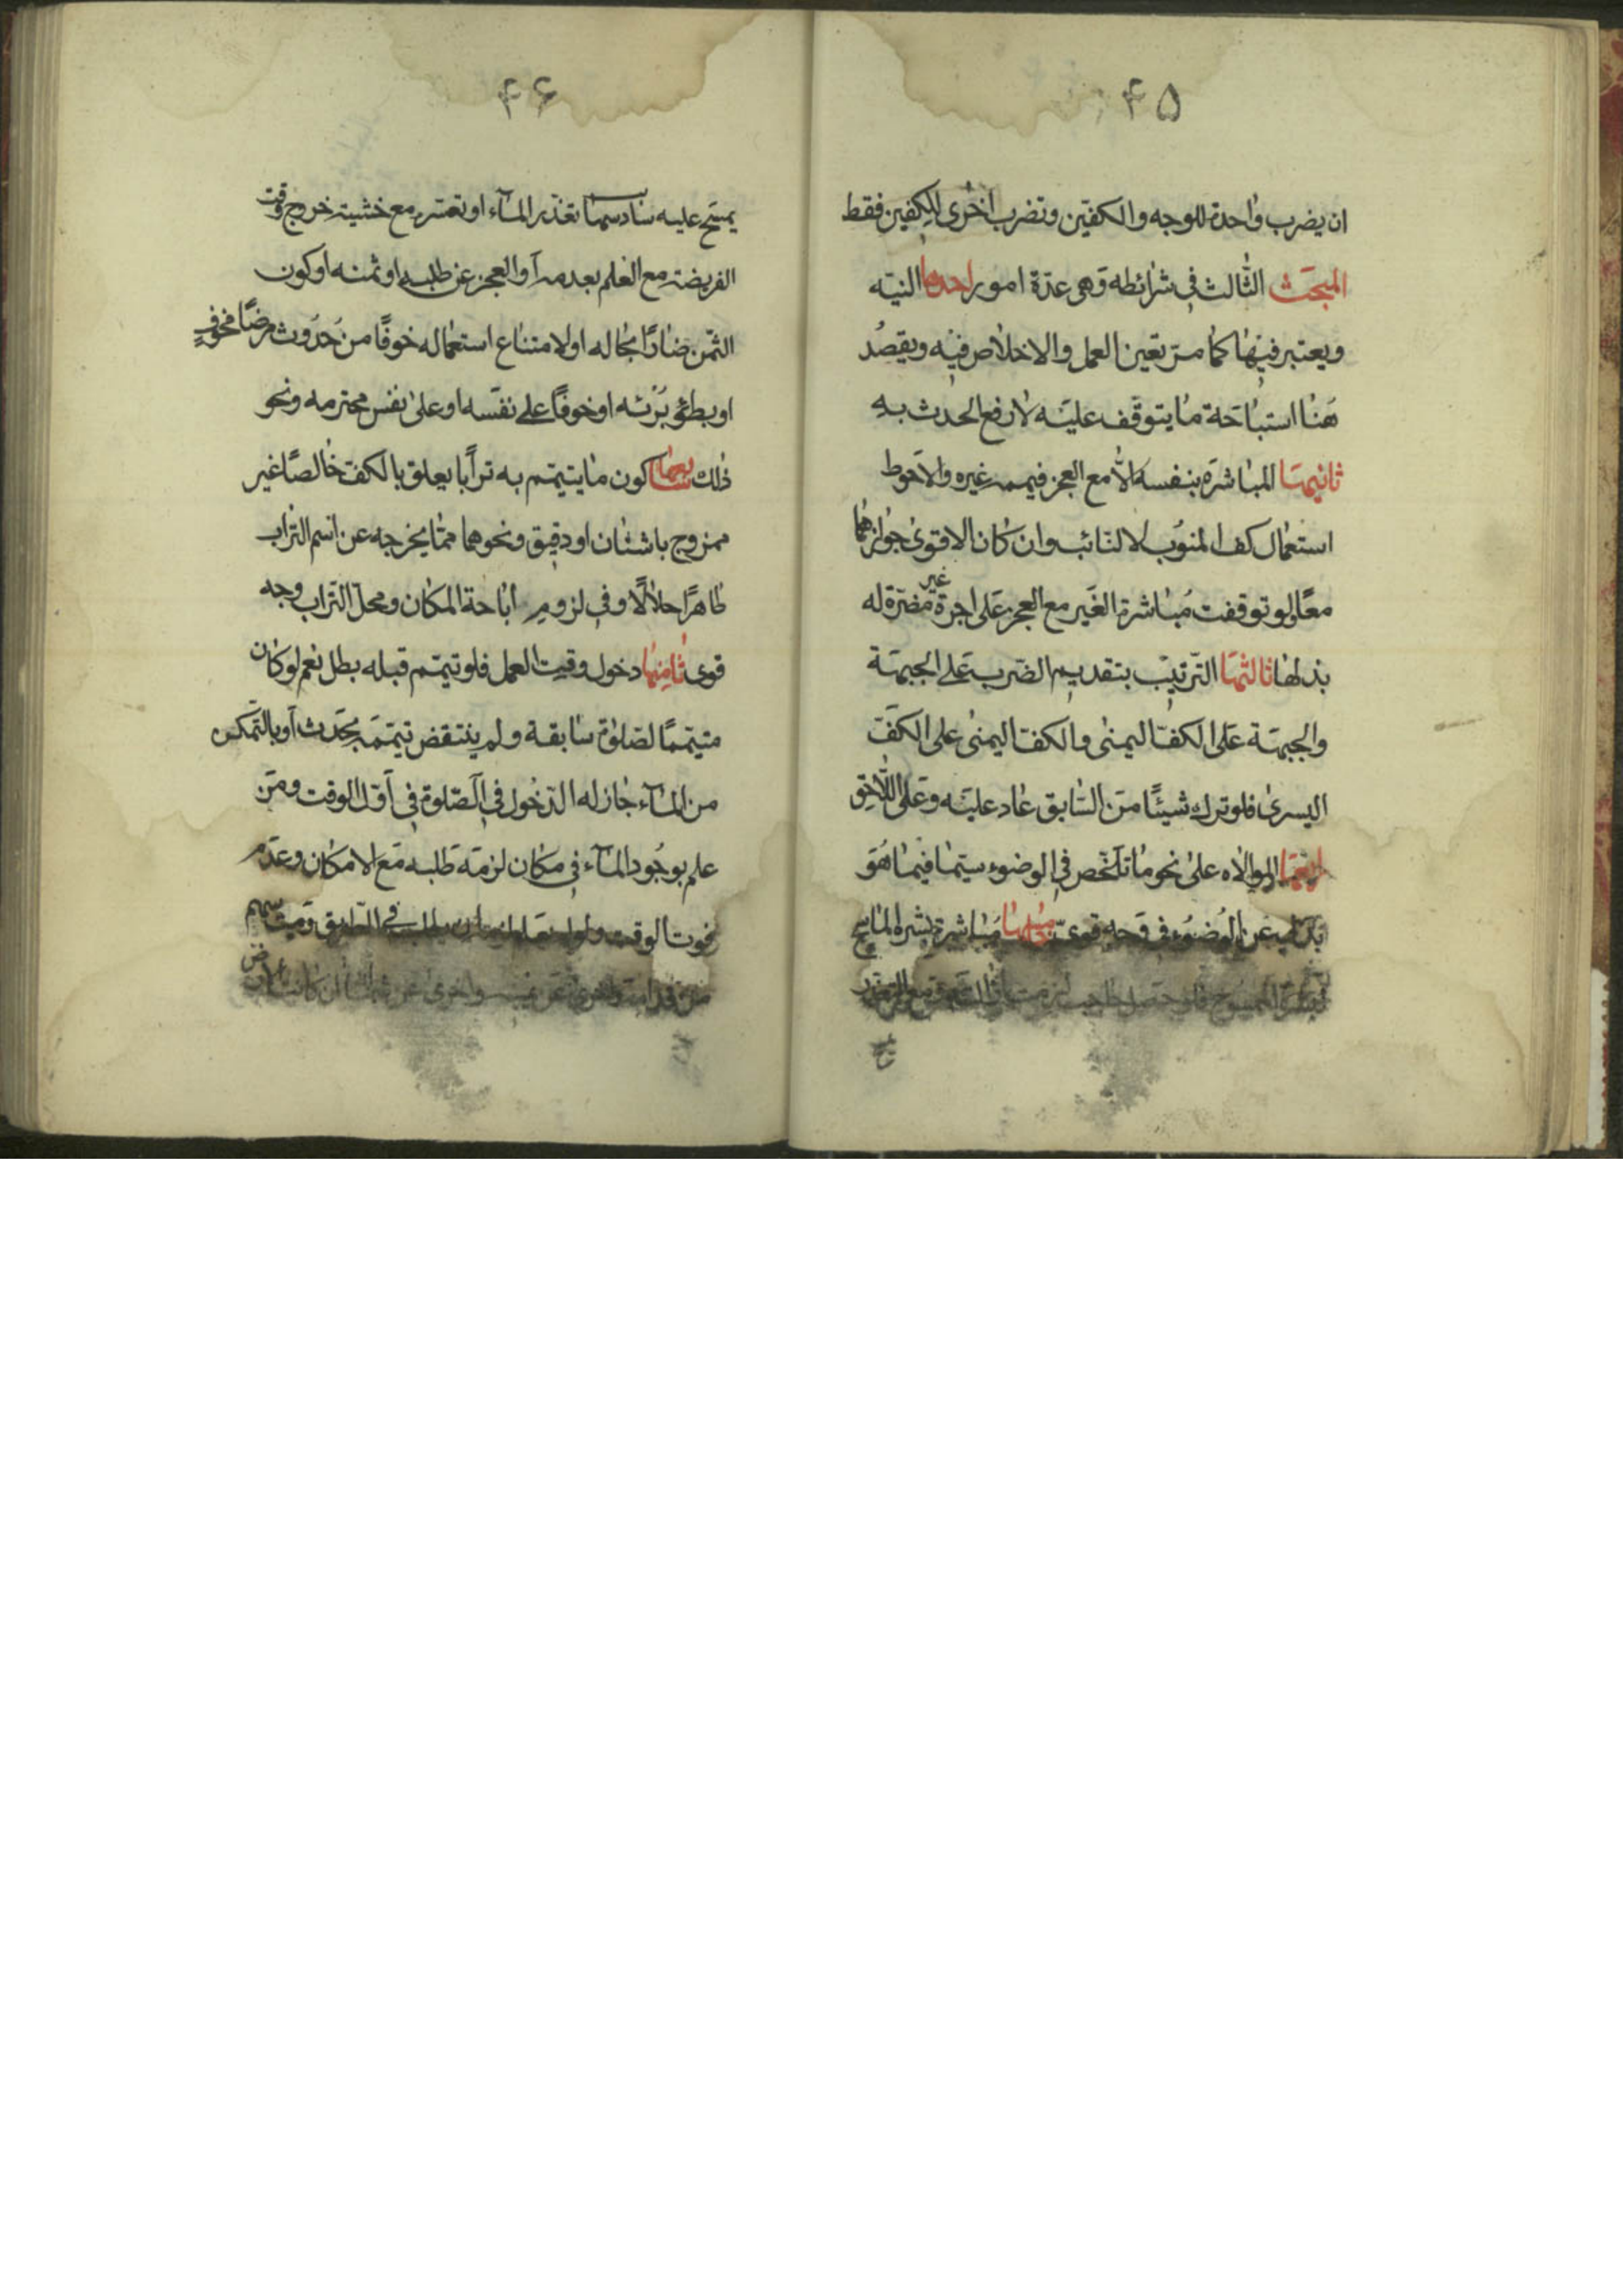 ۴۵
ان يضرب واحدة للوجه والكفين وتضرب اخرى للكفين فقط
المبحث الثالث في شرائطه وهي عدة امور احدها النيه
ويعتبر فيها كما مر تعين العمل والاخلاص فيه ويقصد
هنا استباحة ما يتوقف عليه لا رفع الحدث به
ثانيها المباشرة بنفسه الا مع العجز فيممه غيره والاحوط
استعمال كف المنوب لا النائب وان كان الاقوى جوازهما
معا ولو توقفت مباشرة الغير مع العجز على اجرة غير مضرة له
بذلها ثالثها الترتيب بتقديم الضرب على الجبهة
والجبهة على الكف اليمنى والكف اليمنى على الكف
اليسرى فلو ترك شيئا من السابق عاد عليه وعلى اللاحق
رابعها الموالاه على نحو ما تلخص في الوضوء سيما فيما هو
بدل عن الوضوء في وجه قوي مباشرة بشره الماسح
۴۶
يمسح عليه سادسها تعذر الماء او تعسره مع خشية خروج وقت
الفريضة مع العلم بعدمه او العجز عن طلبه او ثمنه او كون
الثمن ضارا بحاله او لامتناع استعماله خوفا من حدوث مرضا مخوف
او بطؤ برئه او خوفا على نفسه او على نفس محترمه ونحو
ذلك سابعها كون ما يتيمم به ترابا يعلق بالكف خالصا غير
ممزوج باشنان او دقيق ونحوهما مما يخرجه عن اسم التراب
طاهرا حلالا وفي لزوم اباحة المكان ومحل التراب وجه
قوى ثامنها دخول وقت العمل فلو تيمم قبله بطل نعم لو كان
متيمما لصلوة سابقة ولم ينتقض تيممه بحدث او بالتمكن
من الماء جاز له الدخول في الصلوة في اول الوقت ومن
علم بوجود الماء في مكان لزمه طلبه مع الامكان وعدم
فوت الوقت